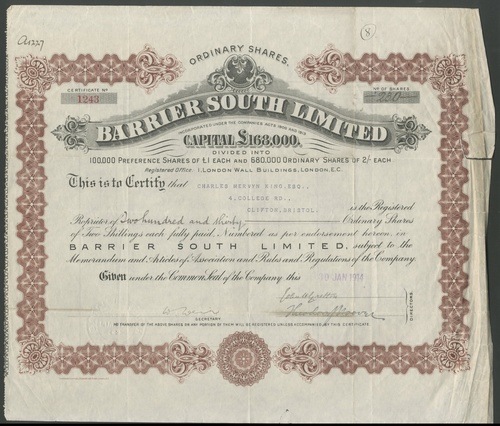 A1227
(8)
ORDINARY SHARES.
CERTIFICATE No
1243
No OF SHARES
230
BARRIER SOUTH LIMITED
INCORPORATED UNDER THE COMPANIES ACTS
CAPITAL £168,000,
DIVIDED INTO
100,000 PREFERENCE SHARES OF £1 EACH AND 680,000 ORDINARY SHARES OF 2/- EACH
Registered Office: 1, LONDON WALL BUILDINGS, LONDON, E.C.
This is to Certify that CHARLES MERVYN KING, ESQ.,
4, COLLEGE RD.,
CLIFTON, BRISTOL.
is the Registered
Proprietor of Two hundred and thirty Ordinary Shares
of Two Shillings each fully paid, Numbered as per endorsement hereon in
BARRIER SOUTH LIMITED, subject to the
Memorandum and Articles of Association and Rules and Regulations of the Company.
Given under the Common Seal of the Company this JAN 1914
DIRECTORS.
SECRETARY.
NO TRANSFER OF THE ABOVE SHARES OR ANY PORTION OF THEM WILL BE REGISTERED UNLESS ACCOMPANIED BY THIS CERTIFICATE.